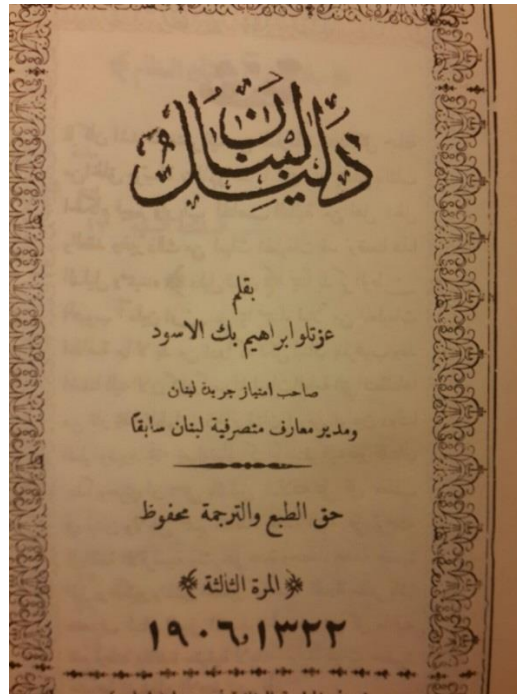 دليل لبنان
بقلم
عزتلو ابراهيم بك الاسود
صاحب امتياز جريدة لبنان
ومدير معارف متصرفية لبنان سابقًا
حق الطبع والترجمة محفوظ
﴿ المرة الثالثة ﴾
١٣٢٢ و ١٩٠٦